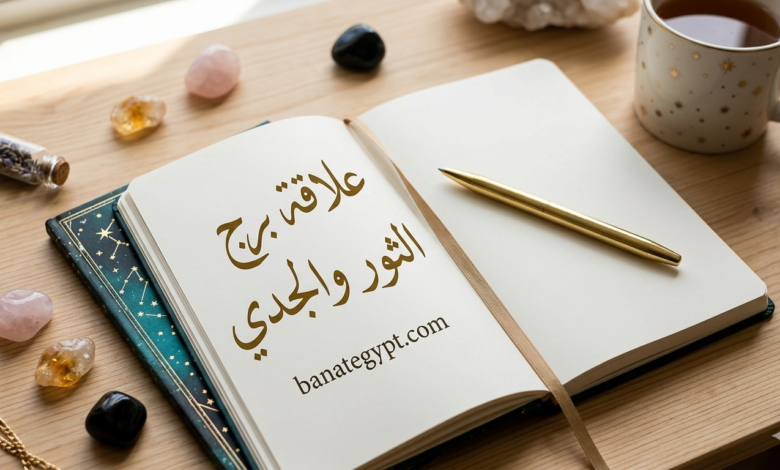 علاقة برج
الثور والجدي
banategypt.com